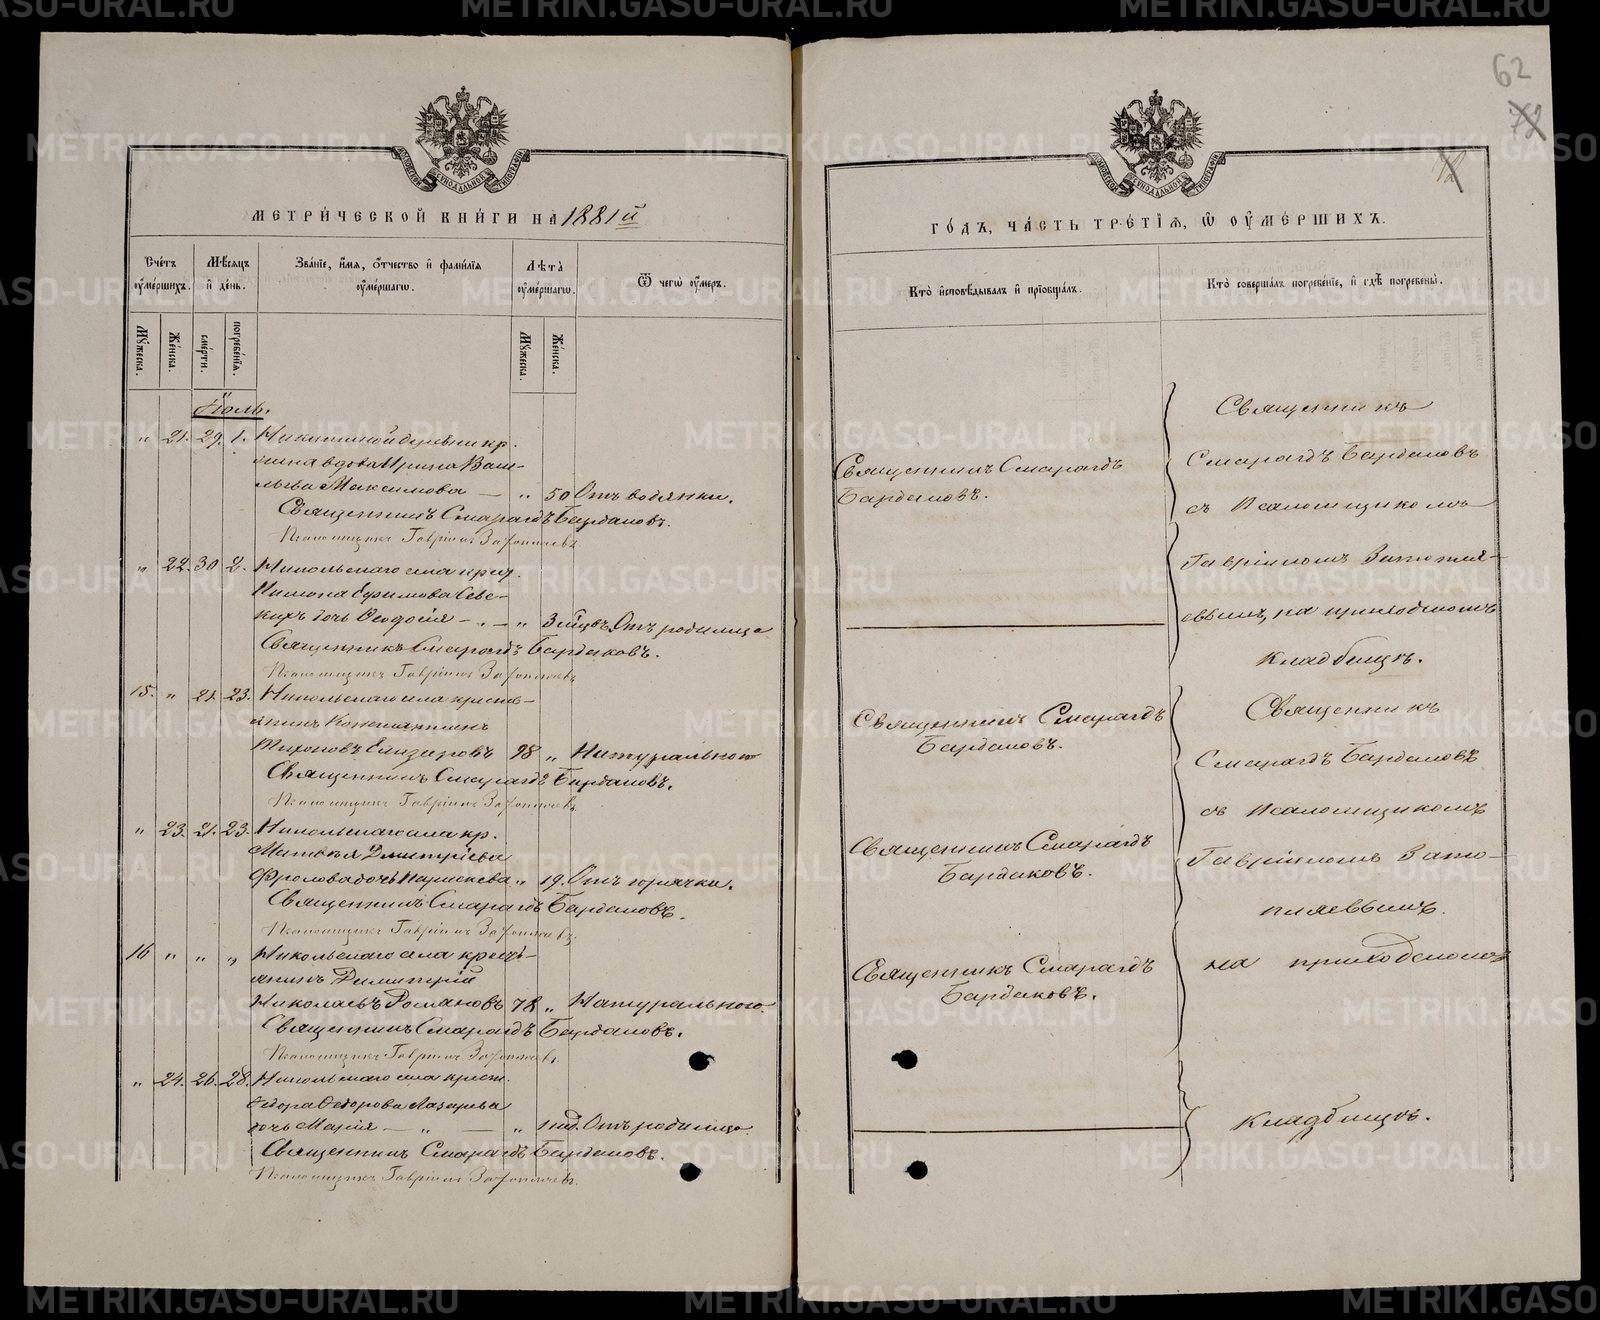 МЕТРИ́ЧЕСКОЙ КНИ́ГИ НА 1881й
Сче́тъ ᲂу҆ме́ршихъ.
Мѣ́сяцъ и҆ де́нь.
Зва́нїе, и҆́мя, ѻ҆́тчество и҆ фами́лїя ᲂу҆ме́ршагѡ.
Лѣ́та ᲂу҆ме́ршагѡ.
Ѿ чегѡ̀ ᲂу҆́меръ.
Мꙋ́жеска.
Же́нска.
сме́рти.
погребе́нїя.
Мꙋ́жеска.
Же́нска.
Іюль.
„ 21. 29. 1. Никитиной деревни кр.
вдова Ирина Васи-
льева Максимова — „ 50 Отъ водянки.
Священникъ Смарагдъ Бардаковъ.
Псаломщикъ Гавріилъ Затопляевъ
„ 22. 30 2. Никольскаго села крест.
Пимона Ефимова Севе-
кихъ дочь Ѳеодосія — „ — „ 3 мцвъ. Отъ родимца
Священникъ Смарагдъ Бардаковъ.
Псаломщикъ Гавріилъ Затопляевъ
15. „ 21. 23. Никольскаго села кресть-
янинъ Константинъ
Тихоновъ Елизаровъ 98 „ Натуральной
Священникъ Смарагдъ Бардаковъ.
Псаломщикъ Гавріилъ Затопляевъ
„ 23. 21. 23. Никольскаго села кр.
Матвѣя Дмитріева
Фролова дочь Параскева „ 19. Отъ горячки.
Священникъ Смарагдъ Бардаковъ.
Псаломщикъ Гавріилъ Затопляевъ.
16 „ „ „ Никольскаго села кресть-
янинъ Димитрій
Николаевъ Романовъ 78 „ Натуральнаго.
Священникъ Смарагдъ Бардаковъ.
Псаломщикъ Гавріилъ Затопляевъ.
„ 24. 26. 28. Никольскаго села крест.
Ѳедора Ѳедорова Лазарева
дочь Марія — „ — „ 1 нед. Отъ родимца.
Священникъ Смарагдъ Бардаковъ.
Псаломщикъ Гавріилъ Затопляевъ.
62
72
ГО́ДЪ, ЧА́СТЬ ТРЕ́ТЇЯ, Ѡ҆ ОУ҆МЕ́РШИХЪ.
Кто̀ и҆сповѣ́дывалъ и҆ прїѡбща́лъ.
Кто̀ соверша́лъ погребе́нїе, и҆ гдѣ̀ погребены̀.
Священникъ Смарагдъ
Бардаковъ.
Священникъ
Смарагдъ Бардаковъ
съ Псаломщикомъ
Гавріиломъ Затопля-
евымъ, на приходскомъ
кладбищѣ.
Священникъ Смарагдъ
Бардаковъ.
Священникъ Смарагдъ
Бардаковъ.
Священникъ Смарагдъ
Бардаковъ.
Священникъ
Смарагдъ Бардаковъ
съ Псаломщикомъ
Гавріиломъ Зато-
пляевымъ.
на приходскомъ
кладбищѣ.